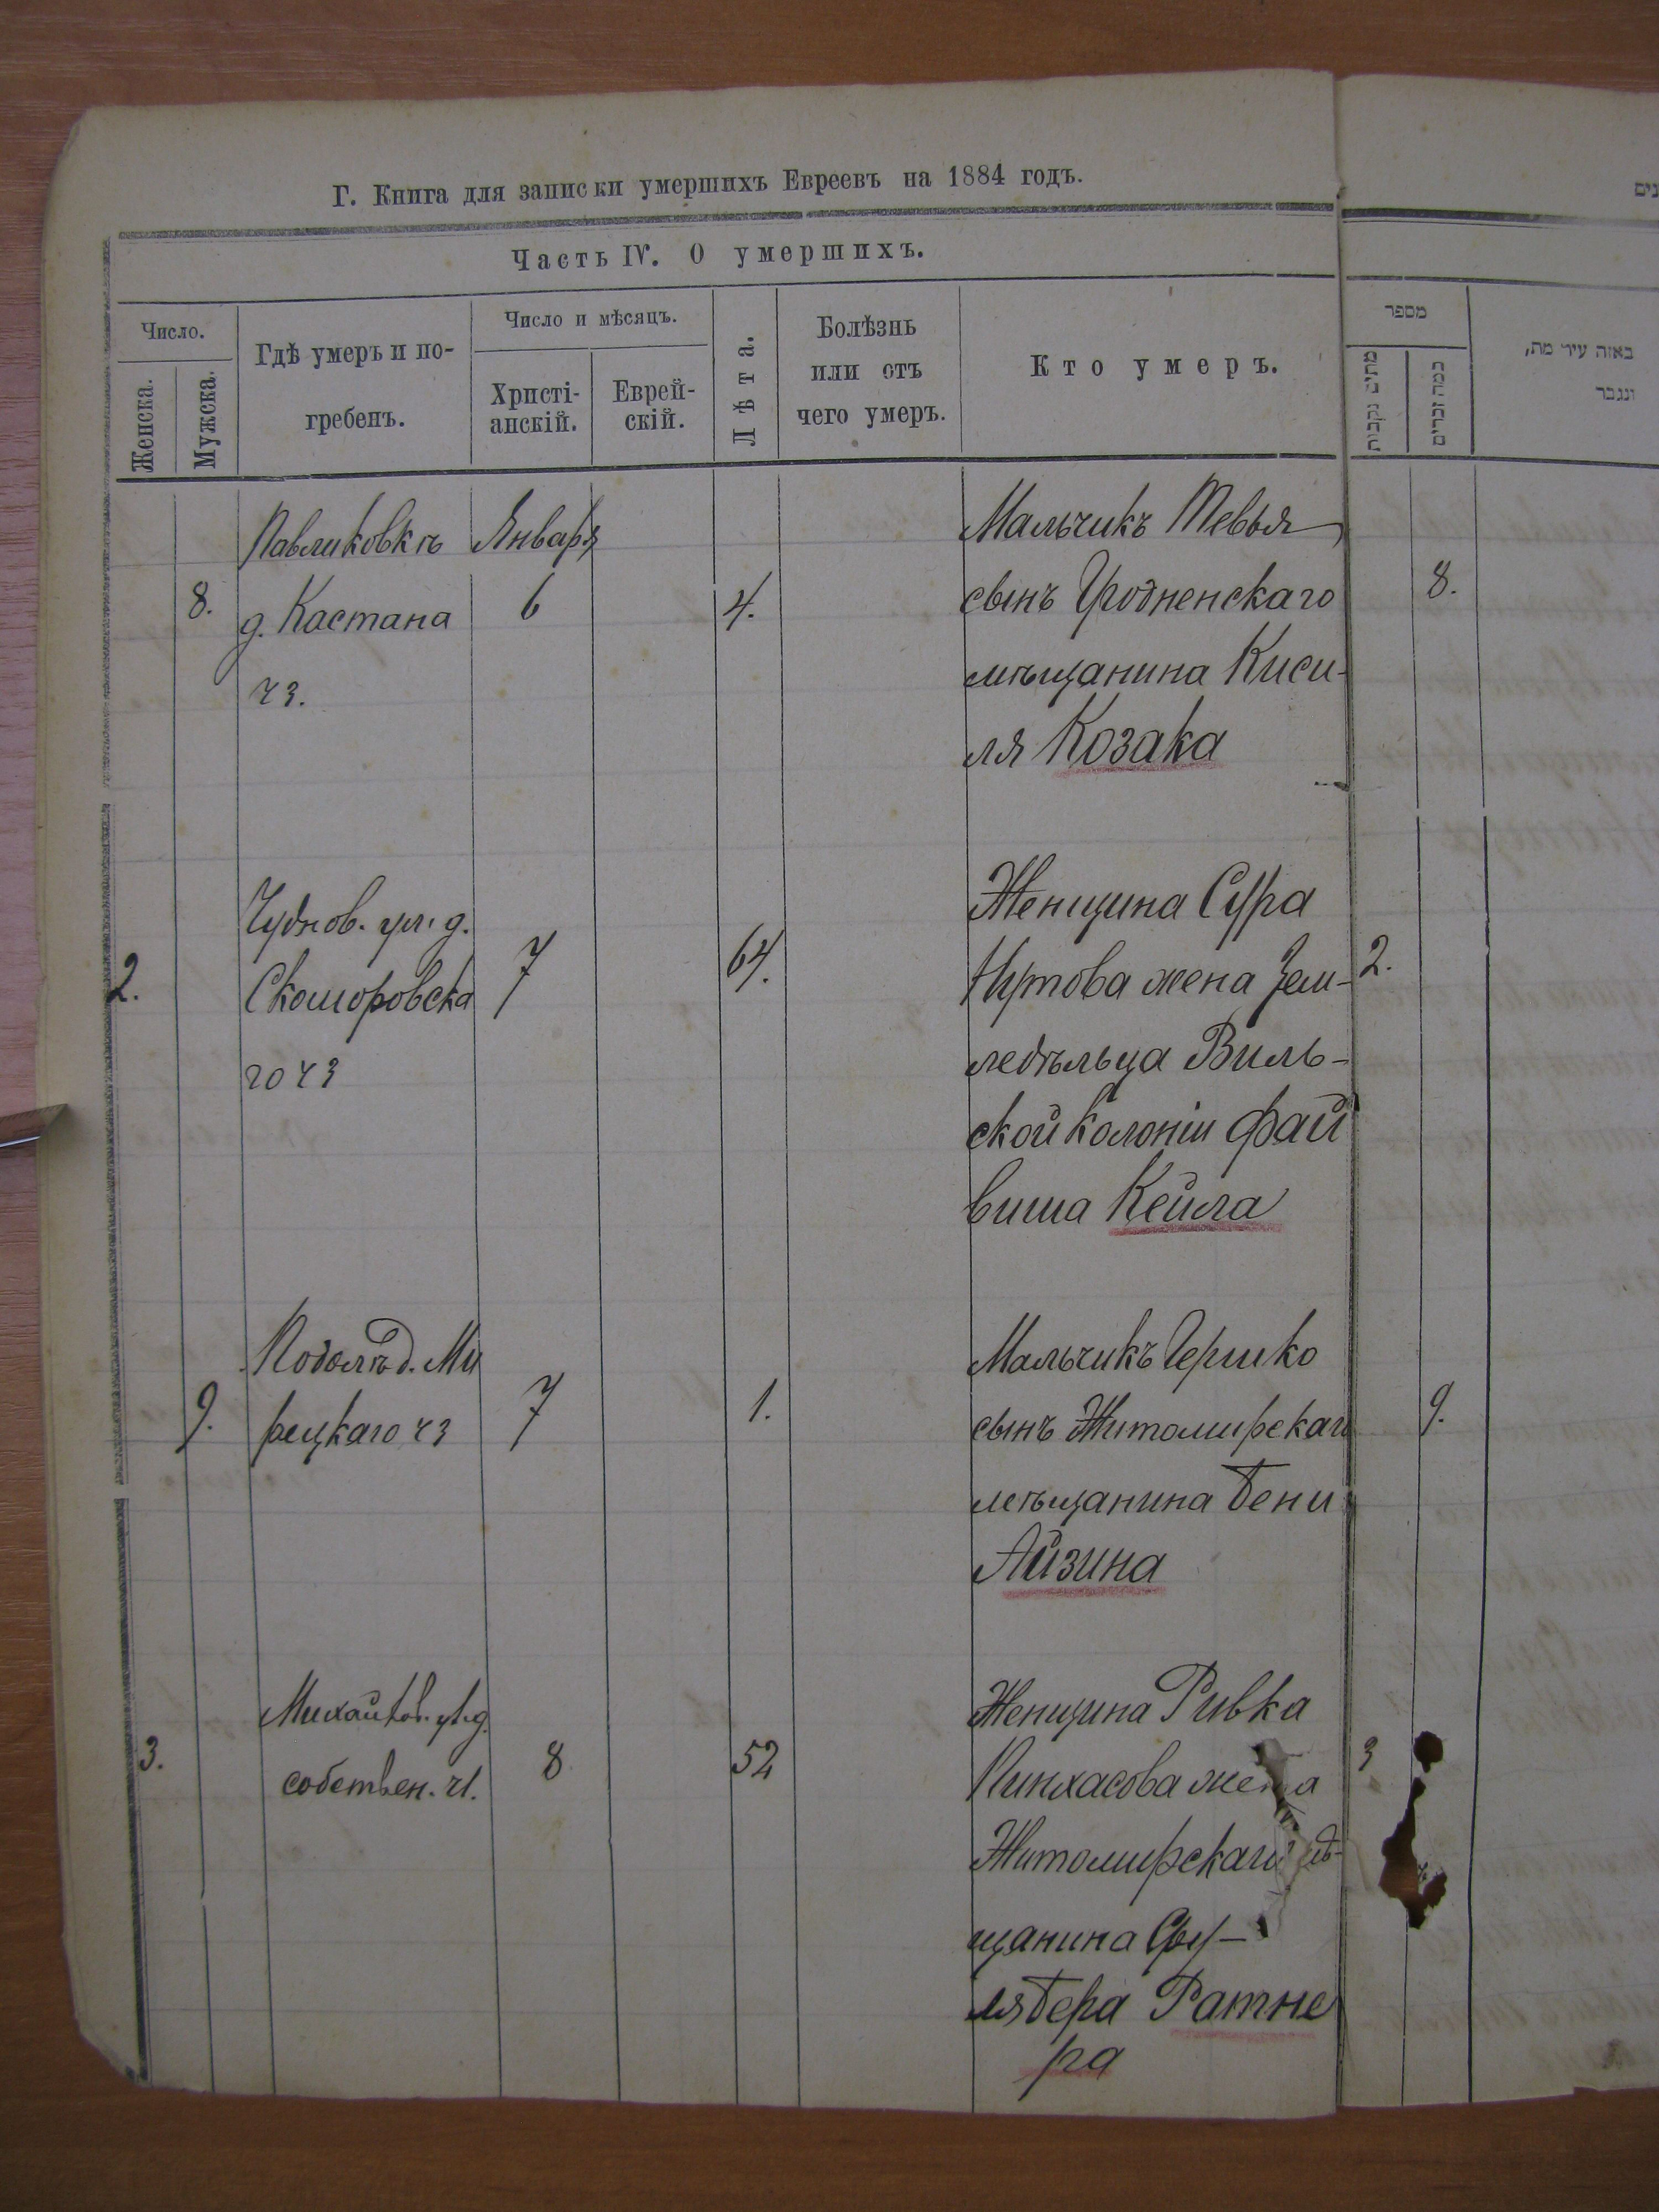 Г. Книга для записки умершихъ Евреевъ на 1884 годъ.
Часть IV. О умершихъ.
Число.
Женска.
Мужска.
Гдѣ умеръ и по-
гребенъ.
Число и мѣсяцъ.
Христі-
анскій.
Еврей-
скій.
Лѣта.
Болѣзнь
или отъ
чего умеръ.
Кто умеръ.
מספר
באזה עיר מת,
ונגבר
8.
Павликовкѣ
д. Кастана
ч3.
Января
6
4.
Мальчикъ Тевья
сынъ Гродненскаго
мѣщанина Киси-
ля Козака
8.
2.
Чуднов. ул. д.
Скоморовска
го ч3
7
64.
Женщина Сура
Нутова жена Зем-
ледѣльца Виль-
ской колоніи Фай
виша Кейла
2.
9.
Подолъ д. Ми
рецкаго ч3
7
1.
Мальчикъ Гершко
сынъ Житомирскаго
мѣщанина Бени
Айзина
9.
3.
Михайлов. ул. д.
собствен. ч1.
8
52
Женщина Ривка
Пинхасова жена
Житомирскаго
щанина
Бера Ратне
ра
3